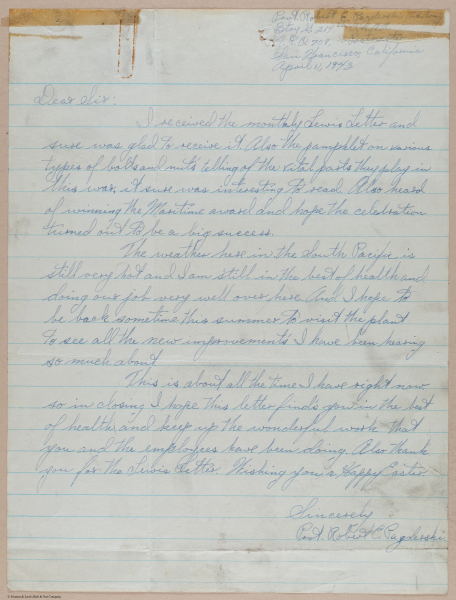 Pvt. Robert E.
Btry G. 214
A.P.O. 709,
San Francisco, California
April 11, 1943
Dear Sir:
I received the monthly Lewis Letter and
sure was glad to receive it. Also the pamphlet on various
types of bolts and nuts telling of the vital parts they play in
this war, it sure was interesting to read. Also heard
of winning the Maritime award and hope the celebration
turned out to be a big success.
The weather here in the South Pacific is
still very hot and I am still in the best of health and
doing our job very well over here. And I hope to
be back sometime this summer to visit the plant
to see all the new improvements I have been hearing
so much about.
This is about all the time I have right now
so in closing I hope this letter finds you in the best
of health and keep up the wonderful work that
you and the employees have been doing. Also thank
you for the Lewis Letter. Wishing you a Happy Easter
Sincerely
Pvt. Robert E.